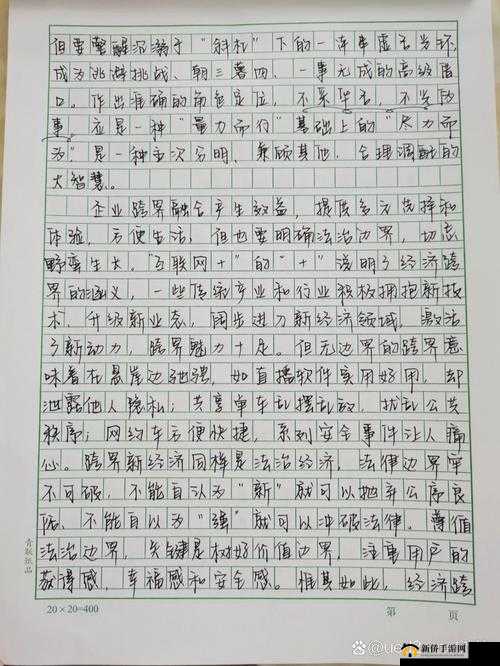 但要警醒沉溺于“斜杠”下的一连串虚云当环,
成为逃避挑战、朝三暮四、一事无成的高级借
口。作出准确的角色定位,不
事,应是一种“量力而行”基础上的“尽力而
为”,是一种主次分明、兼顾其他、合理调配的
大智慧。
企业跨界融合产生效益,提供多元选择和
体验,方便生活,但也要明确法治边界,切忌
野蛮生长。“互联网+”的“+”说明了经济跨
界的涵义,一些传统产业和行业积极拥抱新技
术,升级新业态,阔步进入新经济领域,激活
了新动力,跨界魅力十足。但无边界的跨界意
味着在悬崖边驰骋,如直播软件实用好用,却
泄露他人隐私;共享单车乱摆乱放,扰乱公共
秩序;网约车方便快捷,系列安全事件让人痛
心。跨界新经济同样是法治经济,法律边界牢
不可破,不能自认为“新”就可以抛弃公序良
俗,不能自以为“强”就可以冲破法律。遵循
法治边界,关键是权衡好价值边界,注重用户的
获得感,幸福感和安全感。惟其如此,经济跨
青联纸品
20×20=400
第 页
新侨手游网